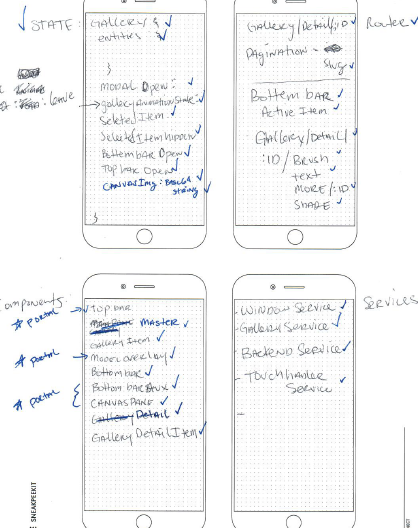 STATE:
Gallery {
entities
}
MODAL Open:
galleryAnimationState:
Selected Item:
Selected Item hidden
Bottom bar Open
Top bar Open
CANVASImg: BASE64
string
}
leave
Gallery/Detail/:ID
Router
PAgination -
Slug
Bottom bar
Active Item
Gallery/Detail/
:ID/Brush
text
MORE/:ID
SHAPE
Components:
* portal
* portal
* portal
top bar
MASTER
Gallery Item
MODEL overlay
Bottom bar
Bottom bar AUX
CANVAS PANE
Gallery Detail
Gallery Detail Item
- WINDOW Service
- Gallery Service
- BACKEND Service
- TOUCH handler
Service
-
SERVICES
SNEAKPEEKIT